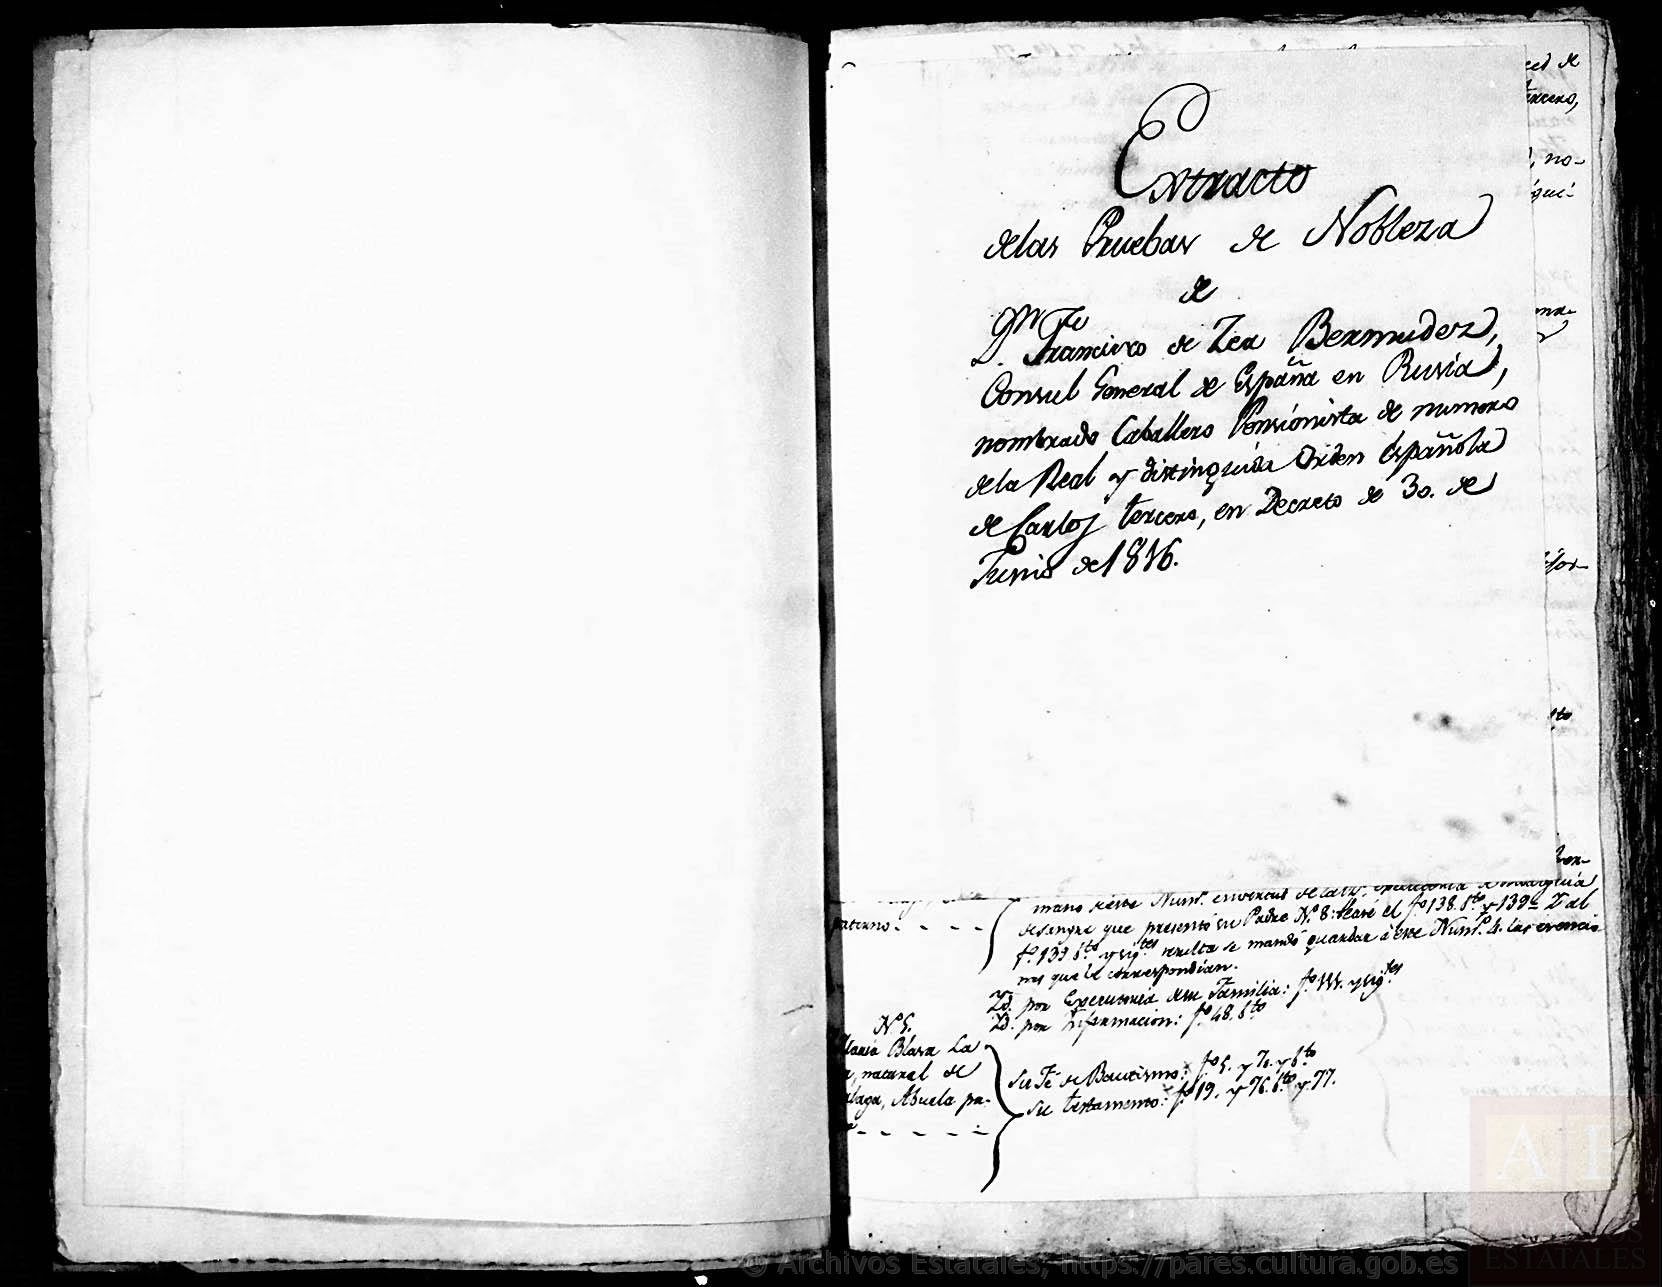 Extracto
delas Pruebas de Nobleza
de
D.n Fran.co Francisco de Zea Bermudez,
Consul General de España en Rusia,
nombrado Caballero Pensionista de numero
dela Real y distinguida Orden Española
de Carlos tercero, en Decreto de 30. de
Junio de 1816.
ced de
tercero,
, no-
qui-
paterno
mano de este Num.o
desangre que presentó su Padre N.o 8: desde el f.o 138. b.to y 139. Y al
f.o 139 b.to y sig.tes resulta se mandó guardar á este Num.o 4. las exencio
nes que le correspondian.
Yd. por Executoria desu Familia: f.o y sig.tes
Yd. por Informacion: f.o 48. b.to
N.o 5.
Maria Blasa La
, natural de
laga, Abuela pa-
Su Fé de Bautismo: f.o 5. y 70. y b.to
Su testamento: f.o 19. y 76. b.to y 77.
© Archivos Estatales, https://pares.cultura.gob.es
ESTATALES